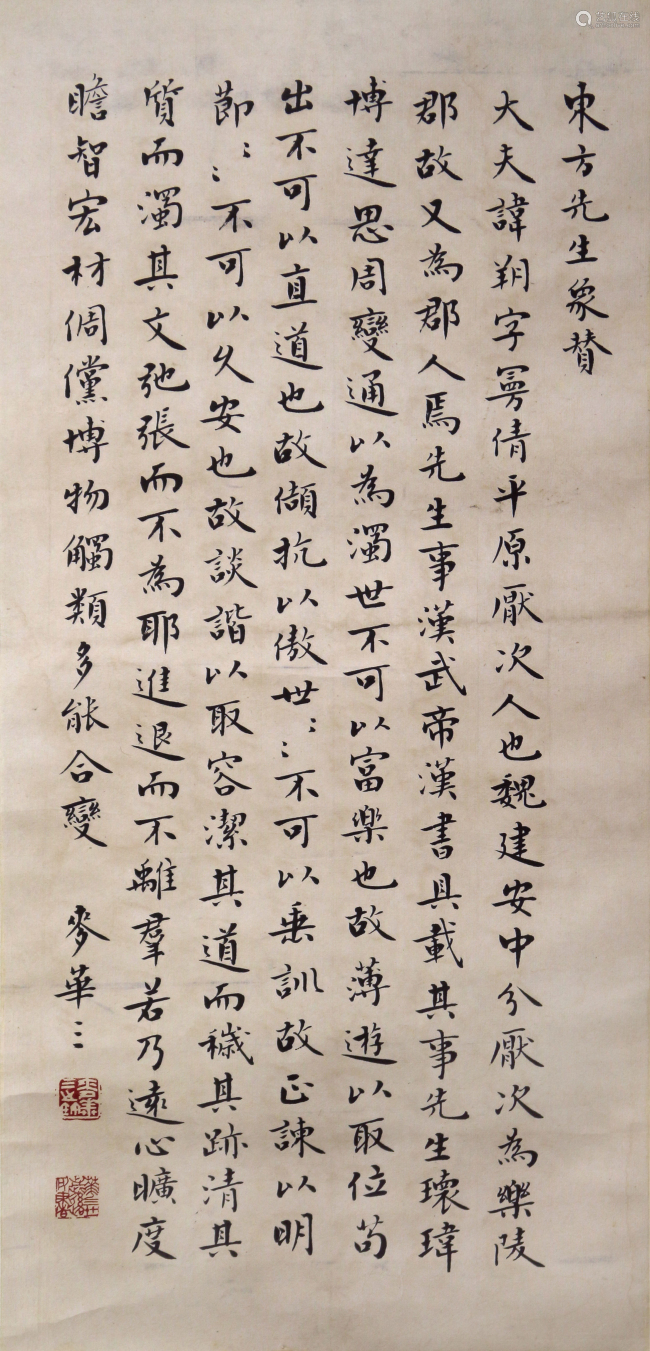 東方先生象贊
大夫諱朔字曼倩平原厭次人也魏建安中分厭次為樂陵
郡故又為郡人焉先生事漢武帝漢書具載其事先生瓌瑋
博達思周變通以為濁世不可以富樂也故薄遊以取位苟
出不可以直道也故頡抗以傲世〻〻不可以垂訓故正諫以明
節〻〻不可以久安也故談諧以取容潔其道而穢其跡清其
質而濁其文弛張而不為耶進退而不離羣若乃遠心曠度
瞻智宏材倜儻博物觸類多能合變 麥華三